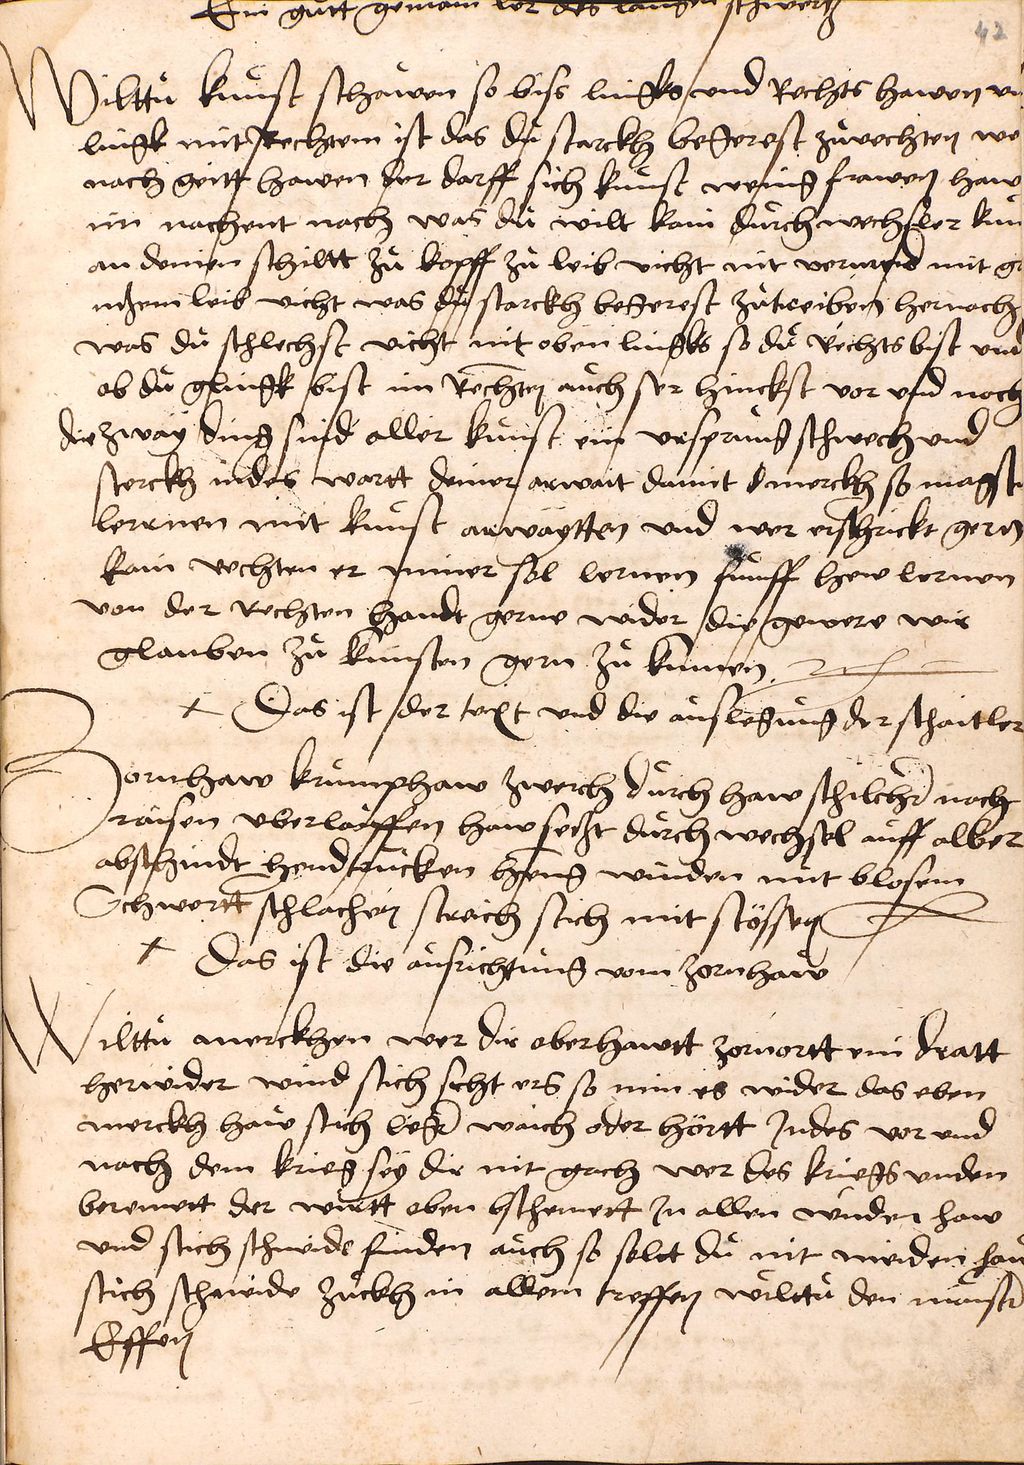 Ein gutt gemain ler des langen schwertz
42
Wilttu kunst schawen so biss lingks und Rechts hawen
lingk mit Rechtem ist das du starckh begerest zuvechten
nach geitt hawen der darff sich kunst wenig frawen
im nachent nach was du wilt kain durchwechsler
an deinen schiltt zu kopff zu leib vicht nit vermeid mit
nzem leib vicht was du starckh begerest zutreiben hernach
was du schlechst vicht nit oben lingks so du Rechts bist und
ob du glingk bist im Rechten auch ser hinckst vor und nach
die zway ding sind aller kunst ein ursprung schwech und
sterckh indes wartt deiner arwait damit merckh so magst
lernen mit kunst arwaytten und wer erschrickt gern
kain vechten er nimer sol lernen funff hew lernen
von der Rechten handt gerne wider die gewere wir
glauben zu kunsten gern zu kumen
Das ist der text und die auslegung der schaitler
Zornhaw krumphaw zwerch durch haw schilchr noch
raisen uberlauffen haw seczt durch wechsel auff alber
abschindt hendtrucken heng winden mit blosem
Schwertt schlachen streich stich mit stössen
Das ist die ausrichtung vom zornhaw
Wilttu merckhen wer dir oberhawtt zornortt ein dratt
herwider wind stich secht ers so nim es wider das eben
merckh haw stich legr waich oder hörtt Indes vor und
nach dem krieg sey dir nit gach wer des kriegs unden
beremett der wirtt oben bschemett In allen winden haw
und stich schneide finden auch so soltt du nit meiden haw
stich schneide zuckh in allem treffen wilttu den maustr
Effen